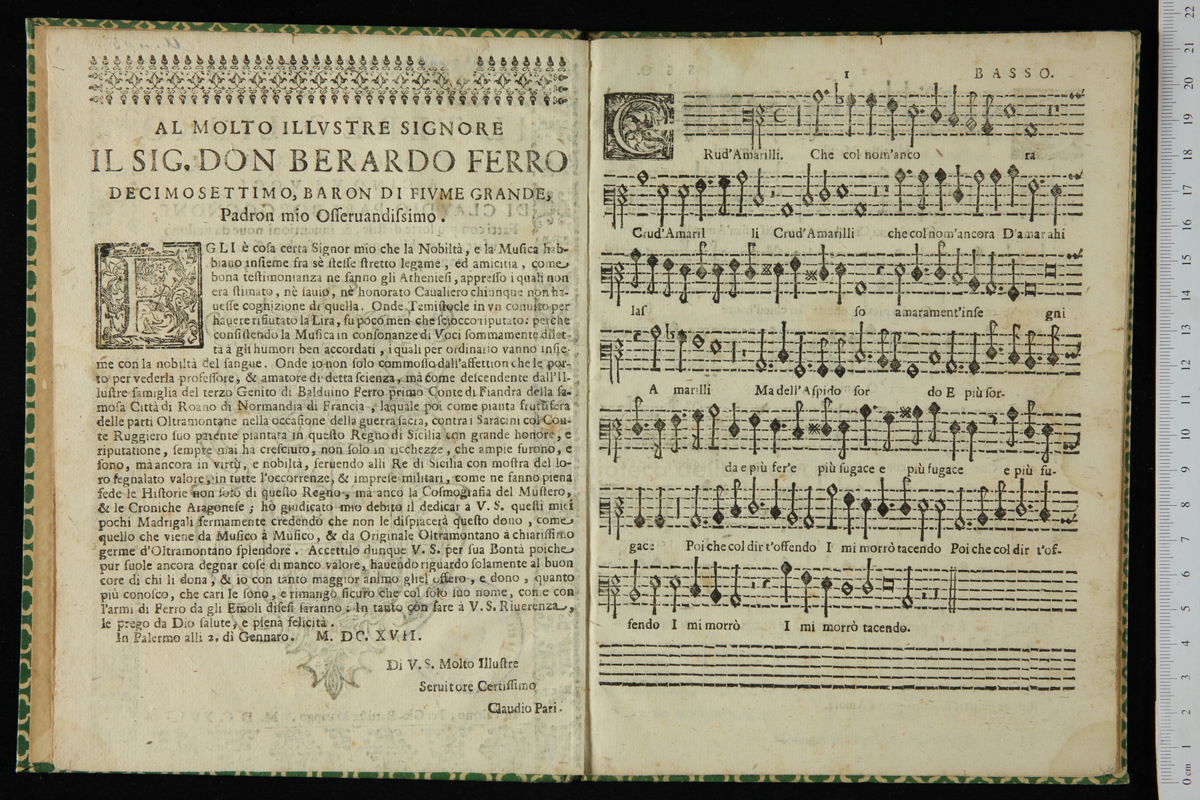 AL MOLTO ILLVSTRE SIGNORE
IL SIG. DON BERARDO FERRO
DECIMOSETTIMO, BARON DI FIVME GRANDE,
Padron mio Osseruandissimo.
EGLI è cosa certa Signor mio che la Nobiltà, e la Musica hab-
biano insieme fra sè stesse stretto legame, ed amicitia, come
bona testimonianza ne fanno gli Atheniesi, appresso i quali non
era stimato, nè sauio, nè honorato Caualiero chiunque non ha-
uesse cognizione di quella. Onde Temistocle in vn conuito per
hauere rifiutato la Lira, fu poco men che sciocco riputato: perche
consistendo la Musica in consonanze di Voci sommamente diser-
ta à gli humori ben accordati, i quali per ordinario vanno insie-
me con la nobiltà del sangue. Onde io non solo commosso dall'affettion che le por-
to per vederla professore, & amatore di detta scienza, mà come descendente dall'Il-
lustre famiglia del terzo Genito di Balduino Ferro primo Conte di Fiandra della fa-
mosa Città di Roano di Normandia di Francia, laquale poi come pianta fruttifera
delle parti Oltramontane nella occasione della guerra sacra, contra i Saracini col Con-
te Ruggiero suo parente piantata in questo Regno di Sicilia con grande honore, e
riputatione, sempre mai hà cresciuto, non solo in ricchezze, che ampie furono, e
sono, mà ancora in virtù, e nobiltà, seruendo alli Re di Sicilia con mostra del lo-
ro segnalato valore, in tutte l'occorrenze, & imprese militari, come ne fanno piena
fede le Historie non solo di questo Regno, mà anco la Cosmografia del Mustero,
& le Croniche Aragonese; hò giudicato mio debito il dedicar à V. S. questi miei
pochi Madrigali fermamente credendo che non le dispiacerà questo dono, come
quello che viene da Musico à Musico, & da Originale Oltramontano à chiarissimo
germe d'Oltramontano splendore. Accettilo dunque V. S. per sua Bontà poiche
pur suole ancora degnar cose di manco valore, hauendo riguardo solamente al buon
core di chi li dona, & io con tanto maggior animo gliel'offero, e dono, quanto
più conosco, che cari le sono, e rimango sicuro che col solo suo nome, come con
l'armi di Ferro da gli Emoli difesi saranno: In tanto con fare à V. S. Riuerenza,
le prego da Dio salute, e piena felicità.
In Palermo alli 2. di Gennaro. M. DC. XVII.
Di V. S. Molto Illustre
Seruitore Certissimo
Claudio Pari.
1 BASSO.
CRud'Amarilli. Che col nom'anco ra
Crud'Amaril li Crud'Amarilli che col nom'ancora D'amar ahi
las so amarament'inse gni
A marilli Ma dell'Aspido sor do E più sor-
da e più fer'e più fugace e più fugace e più fu-
gace Poi che col dir t'offendo I mi morrò tacendo Poi che col dir t'of-
fendo I mi morrò I mi morrò tacendo.